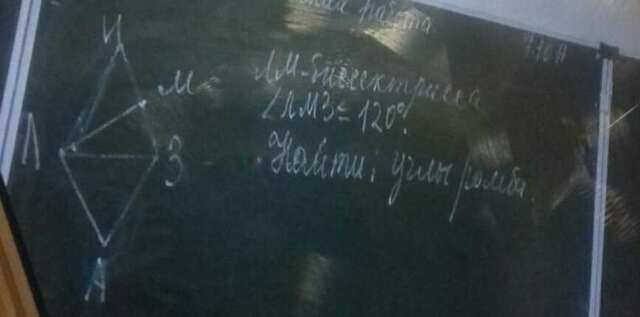 работа
И
М
Л
З
А
ЛМ-биссектрисса
∠ЛМЗ = 120°.
Найти: углы ромба.